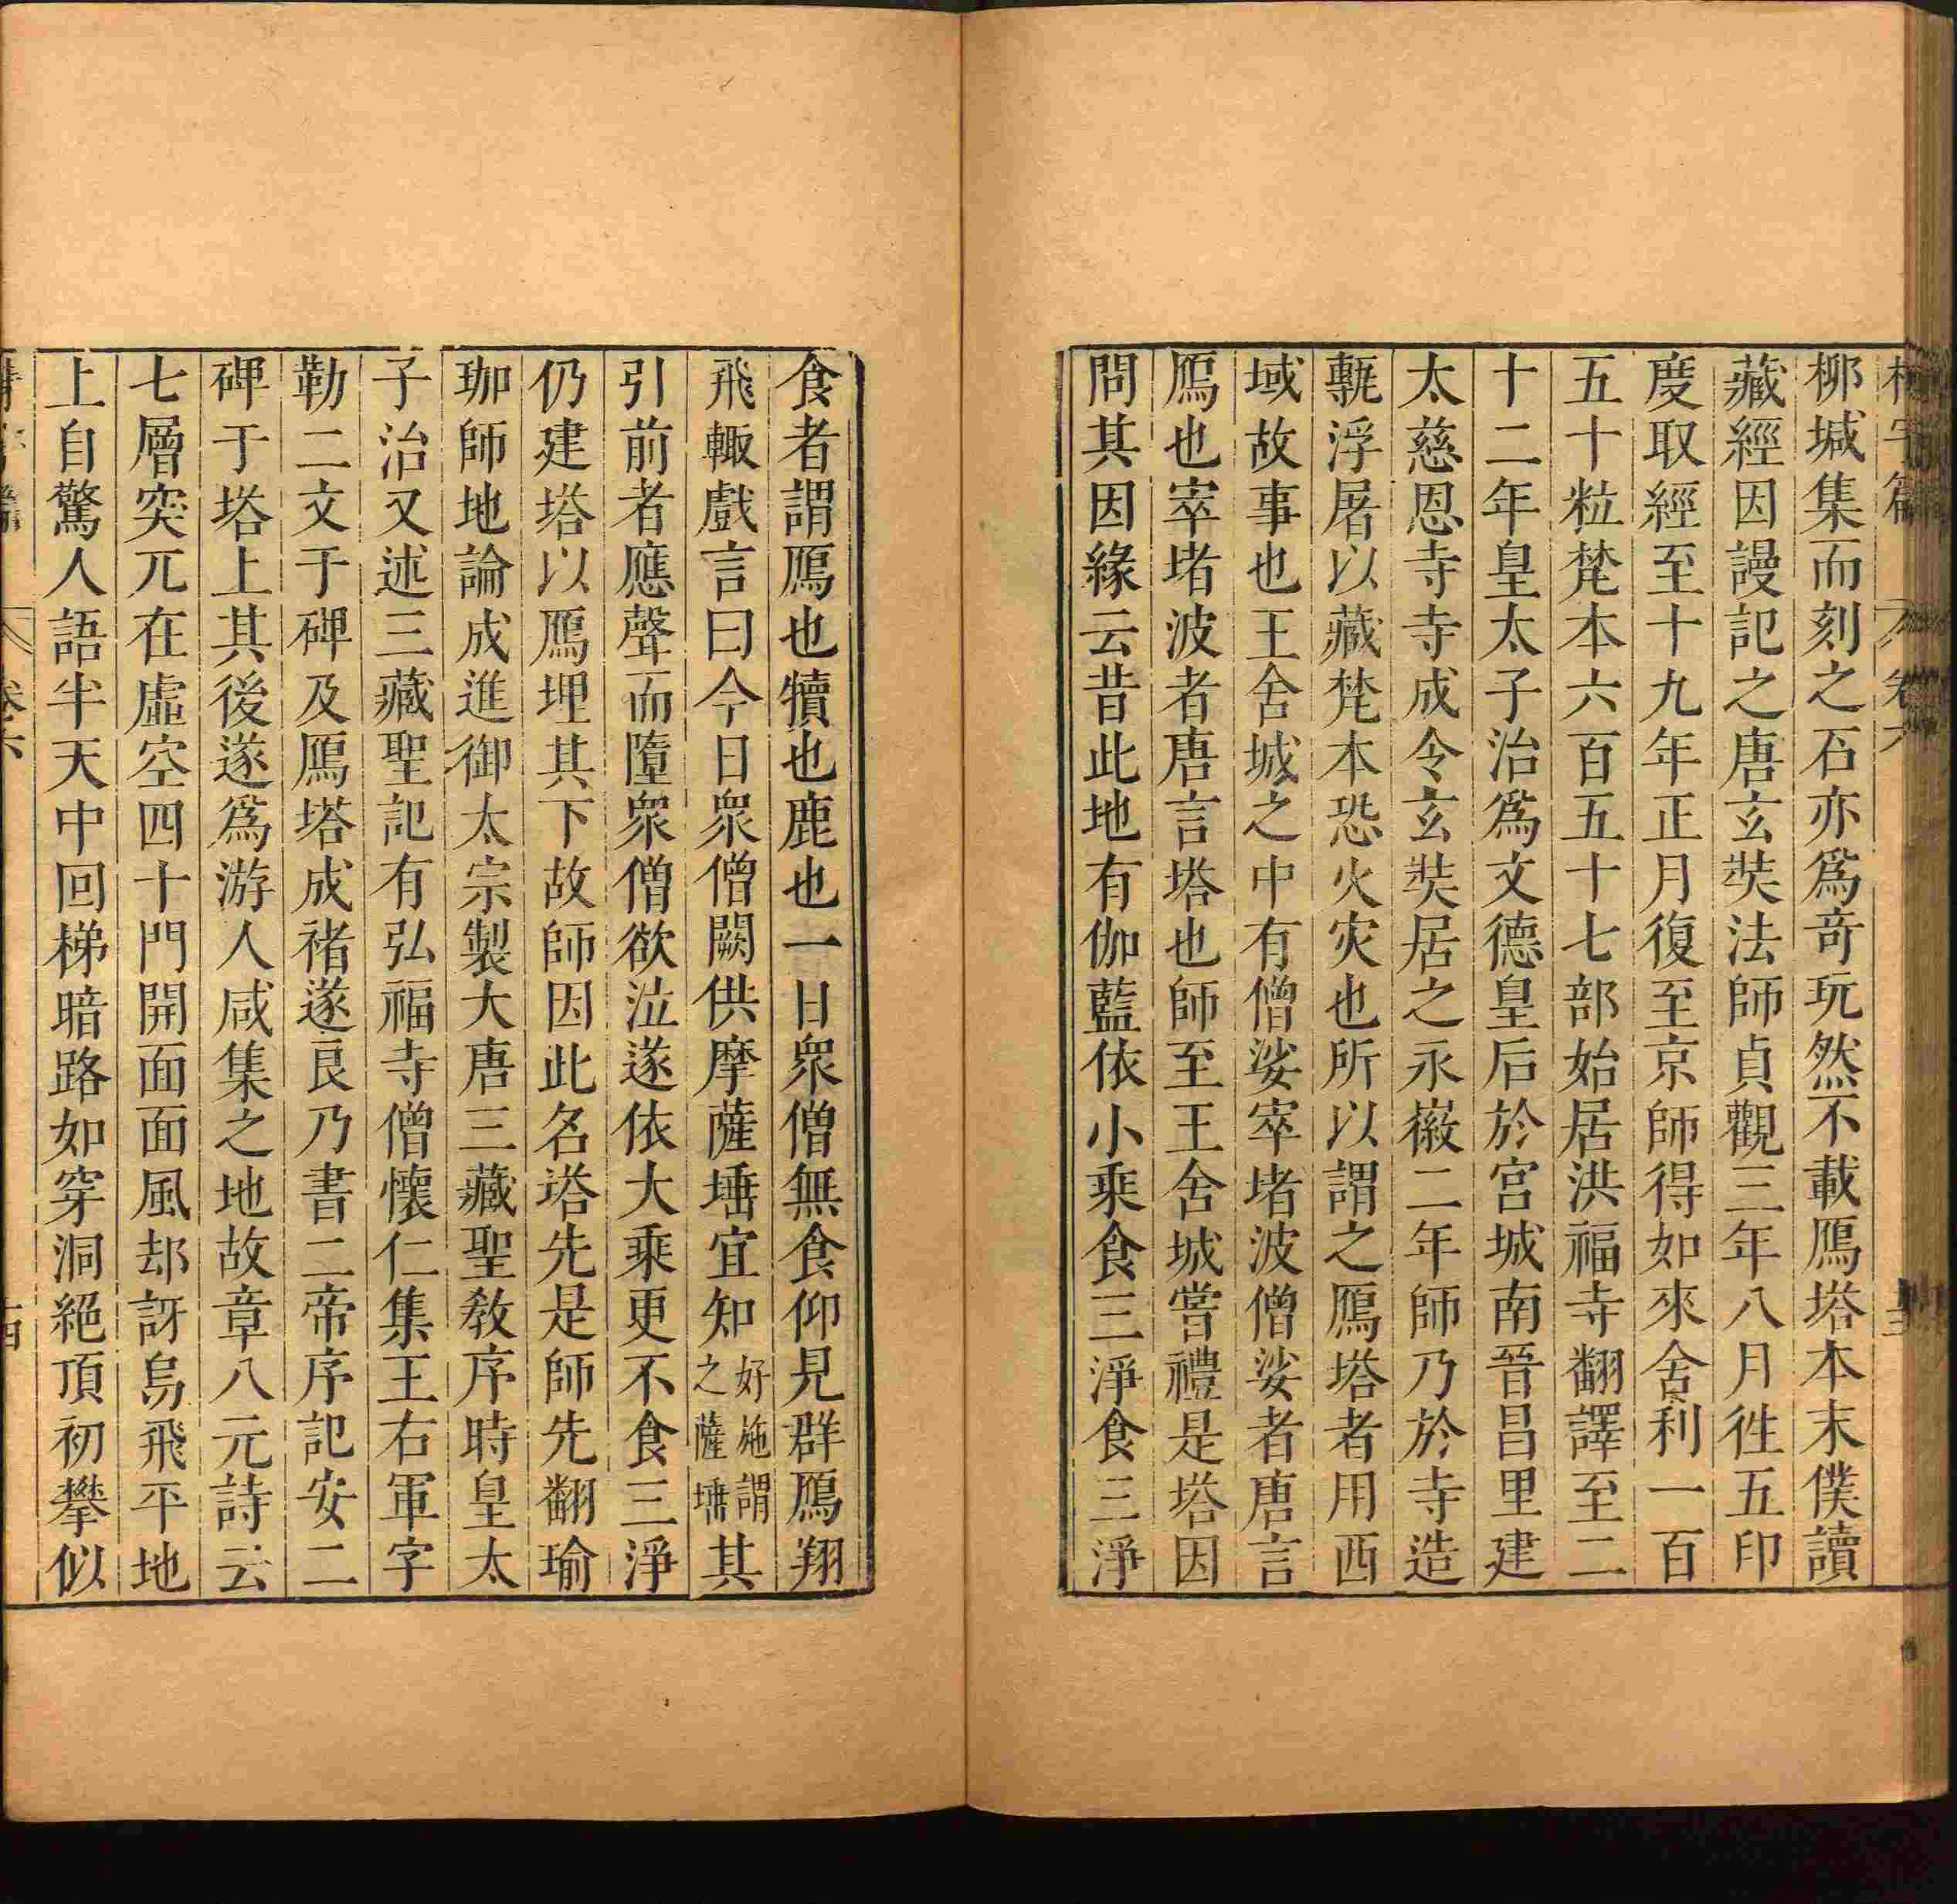 柳堿集而刻之石亦爲竒玩然不載鴈塔本末僕讀
藏經因謾記之唐玄奘法師貞觀三年八月徃五印
度取經至十九年正月復至京師得如來舍利一百
五十粒梵本六百五十七部始居洪福寺翻譯至二
十二年皇太子治爲文德皇后於宮城南晉昌里建
太慈恩寺寺成令玄奘居之永徽二年師乃於寺造
甎浮屠以藏梵本恐火灾也所以謂之鴈塔者用西
域故事也王舍城之中有僧娑窣堵波僧娑者唐言
鴈也窣堵波者唐言塔也師至王舍城嘗禮是塔因
問其因緣云昔此地有伽藍依小乘食三淨食三淨
食者謂鴈也犢也鹿也一日衆僧無食仰見群鴈翔
飛輙戲言曰今日衆僧闕供摩薩埵宜知好施謂之薩埵其
引前者應聲而墮衆僧欲泣遂依大乘更不食三淨
仍建塔以鴈埋其下故師因此名塔先是師先翻瑜
珈師地論成進御太宗製大唐三藏聖教序時皇太
子治又述三藏聖記有弘福寺僧懷仁集王右軍字
勒二文于碑及鴈塔成褚遂良乃書二帝序記安二
碑于塔上其後遂爲游人咸集之地故章八元詩云
七層突兀在虛空四十門開面面風却訝烏飛平地
上自驚人語半天中回梯暗路如穿洞絕頂初攀似
卷六